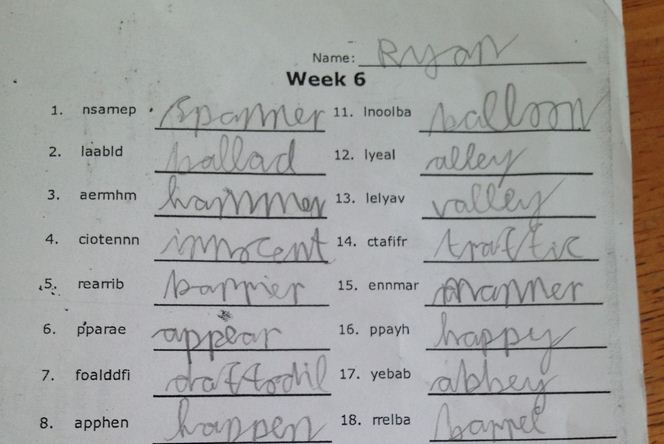 Name: Ryan
Week 6
1. nsarnep spanner
2. laabld ballad
3. aermhm hammer
4. ciotennn innocent
5. rearrib barrier
6. pparae appear
7. foalddfi daffodil
8. apphen happen
11. lnoolba balloon
12. lyeal alley
13. lelyav valley
14. ctafifr traffic
15. ennmar manner
16. ppayh happy
17. yebab abbey
18. rrelba barrel